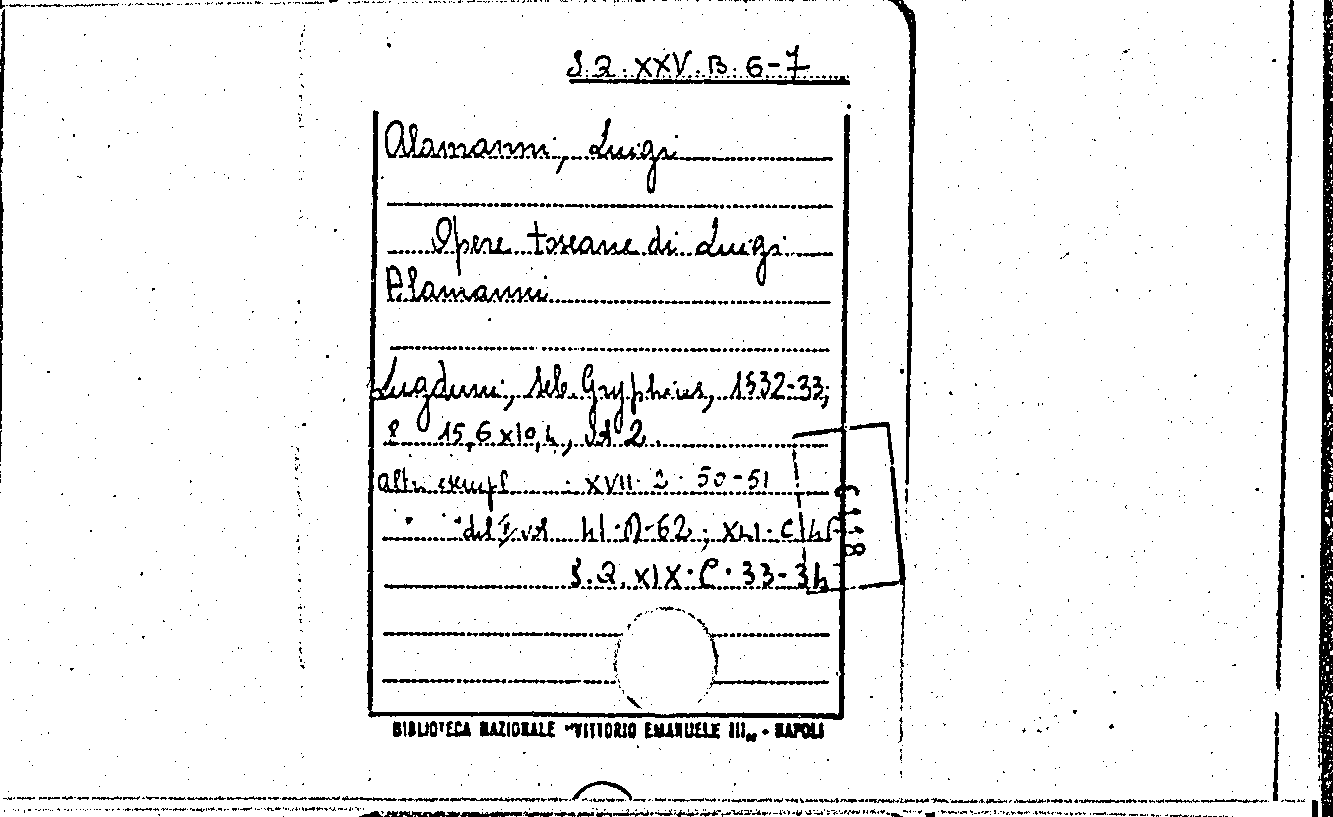 S.Q. XXV. B. 6-7
Alamanni, Luigi
Opere toscane di Luigi
Alamanni
Lugduni, Seb. Gryphius, 1532-33,
8° 15,6x10,4, vol 2.
altri esempl. XVII. 2. 50-51
" " del I vol 41. 62; XLI. C
S.Q. XIX. C. 33-34
6118
BIBLIOTECA NAZIONALE "VITTORIO EMANUELE III" - NAPOLI